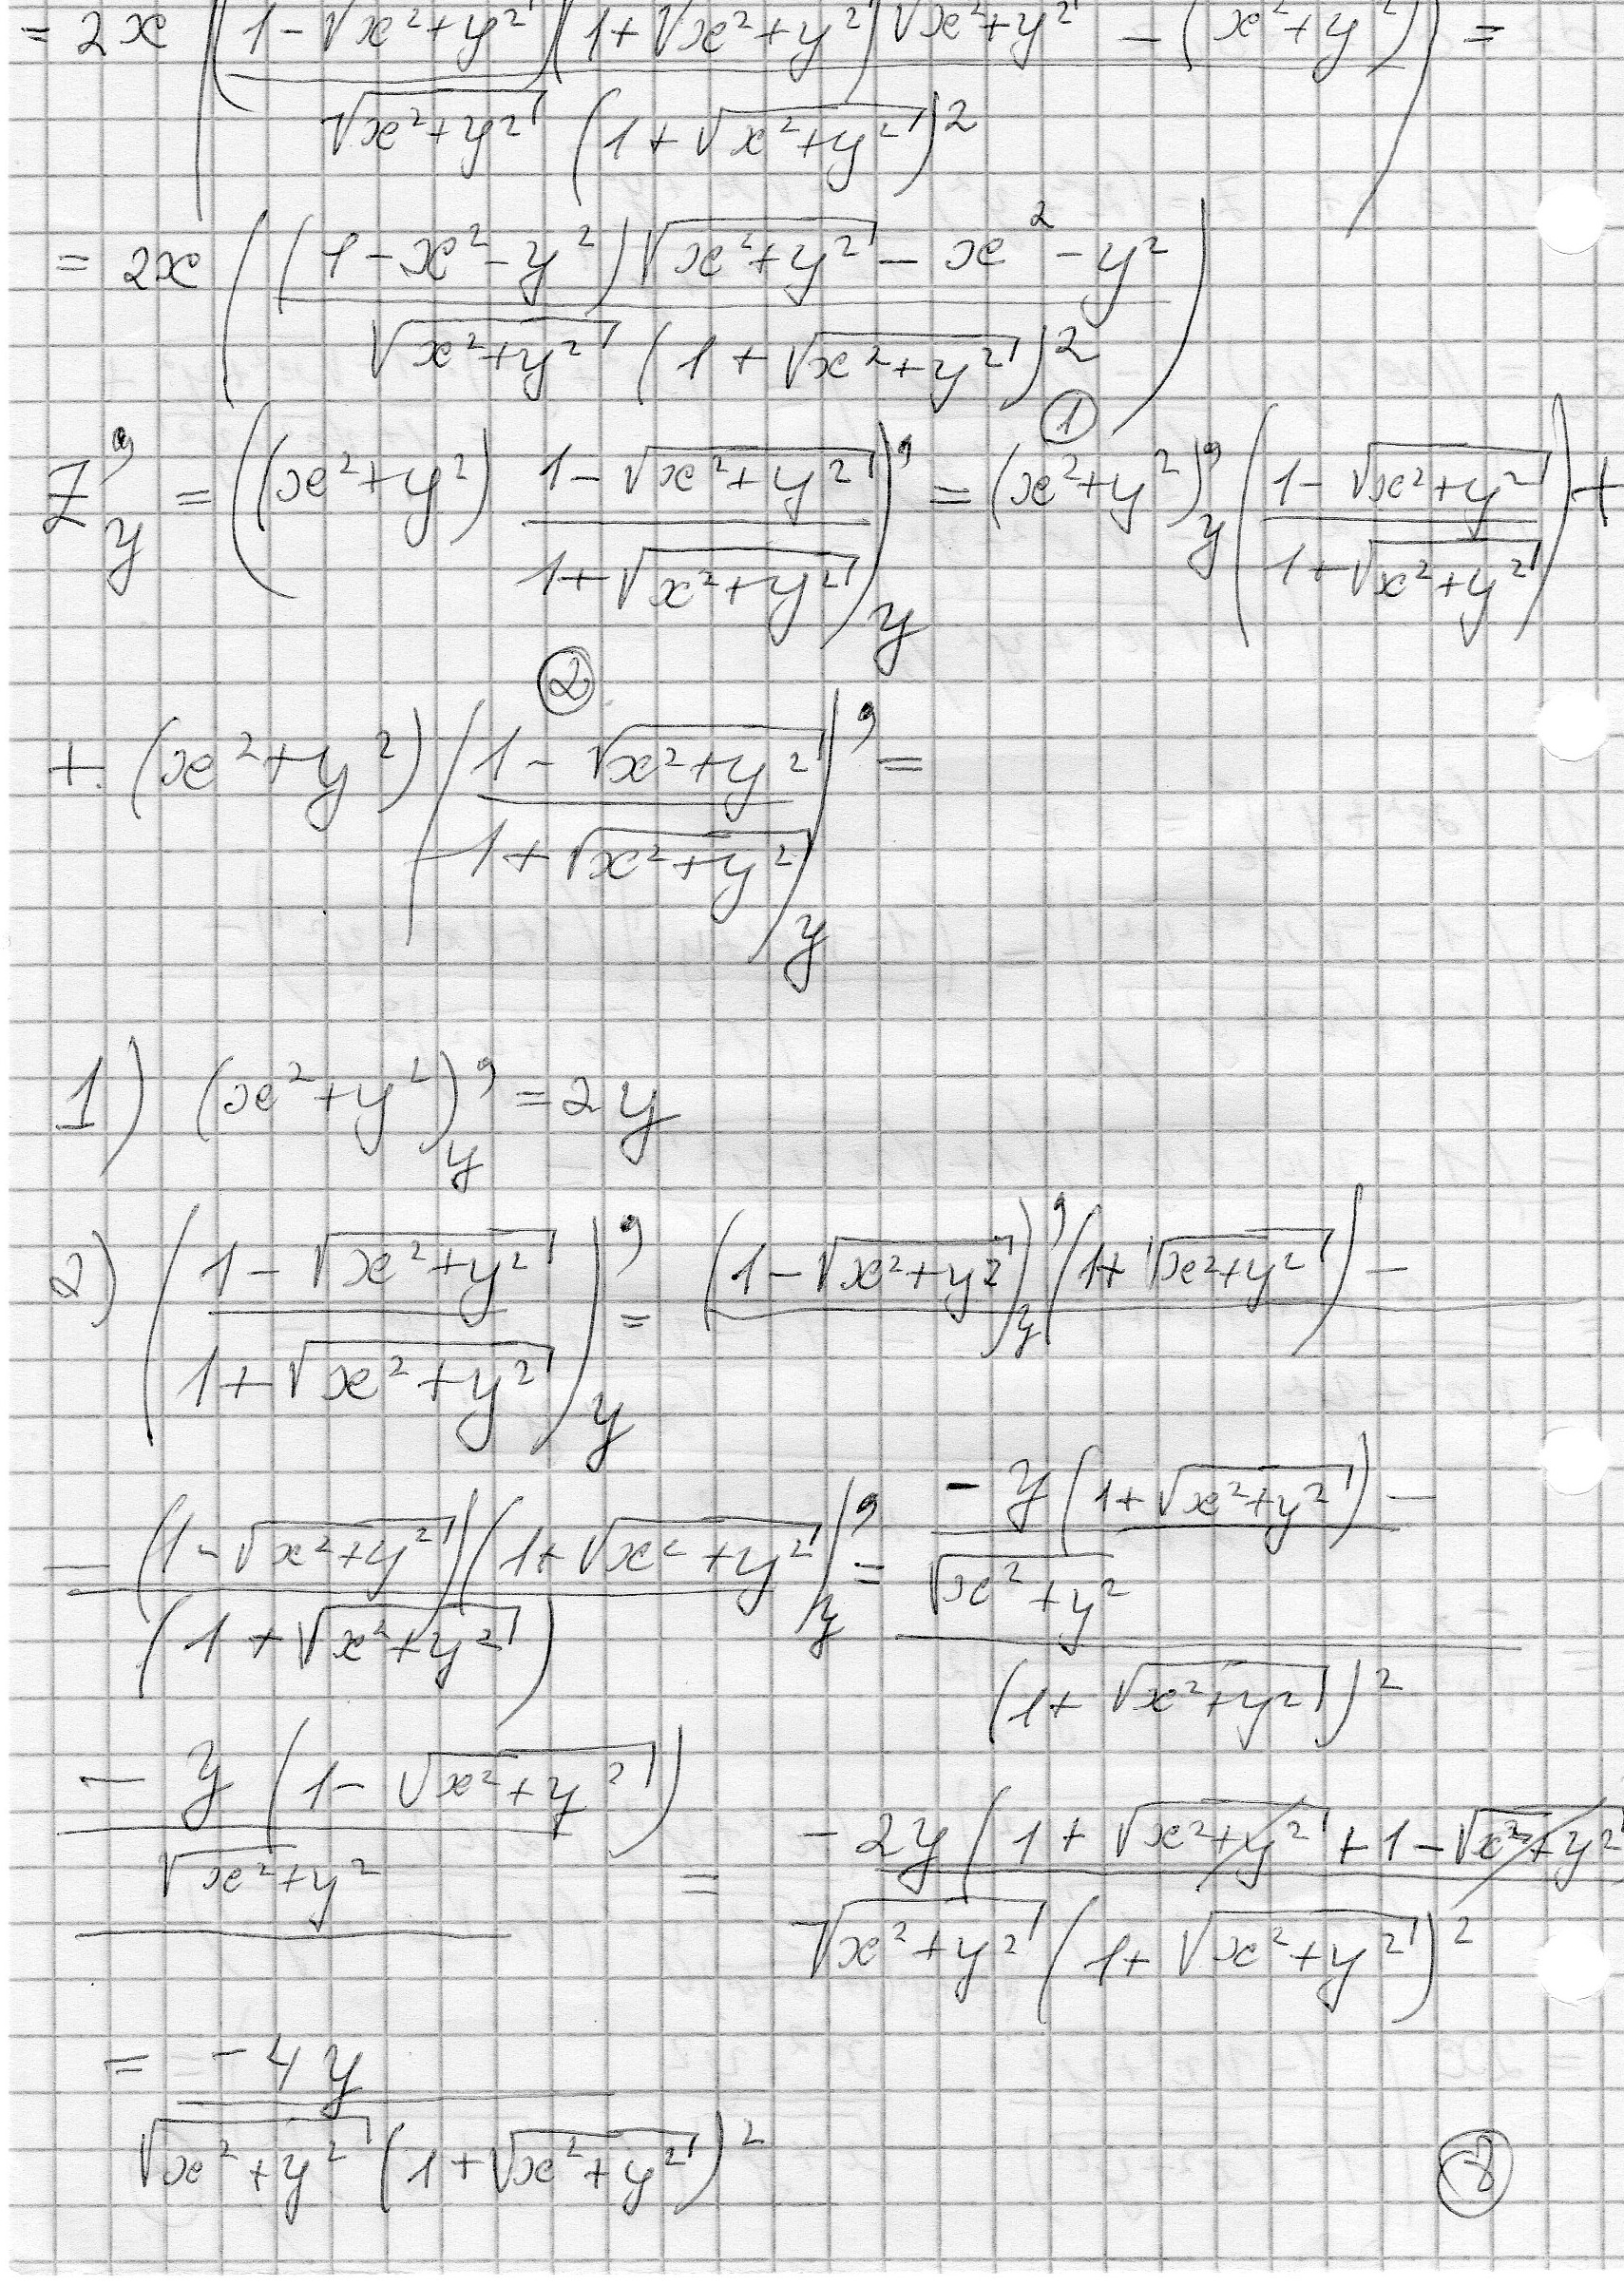 = 2x ( (1-√(x²+y²))(1+√(x²+y²))√(x²+y²) - (x²+y²) ) =
√(x²+y²) (1+√(x²+y²))²
= 2x ( (1-x²-y²)√(x²+y²) - x² - y² )
√(x²+y²) (1+√(x²+y²))²
①
Z'y = ((x²+y²) (1-√(x²+y²))/(1+√(x²+y²)))'y = (x²+y²)'y ((1-√(x²+y²))/(1+√(x²+y²))) +
②
+ (x²+y²) ((1-√(x²+y²))/(1+√(x²+y²)))'y =
1) (x²+y²)'y = 2y
2) ((1-√(x²+y²))/(1+√(x²+y²)))'y = (1-√(x²+y²))'y (1+√(x²+y²)) -
- (1-√(x²+y²))(1+√(x²+y²))'y = -y(1+√(x²+y²)) -
(1+√(x²+y²)) √(x²+y²)
(1+√(x²+y²))²
- y (1-√(x²+y²))
√(x²+y²) = -2y (1+√(x²+y²)+1-√(x²+y²)
√(x²+y²) (1+√(x²+y²))²
= -4y
√(x²+y²) (1+√(x²+y²))²
8